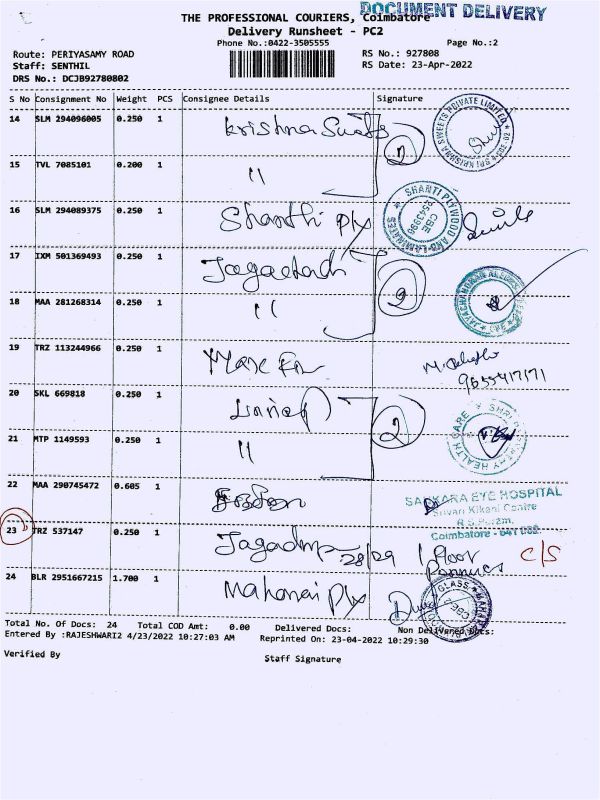 DOCUMENT DELIVERY
THE PROFESSIONAL COURIERS, Coimbatore
Delivery Runsheet - PC2
Phone No.:0422-3505555 Page No.:2
Route: PERIYASAMY ROAD RS No.: 927808
Staff: SENTHIL RS Date: 23-Apr-2022
DRS No.: DCJB92780802
S No Consignment No Weight PCS Consignee Details Signature
14 SLM 294096005 0.250 1 Krishna Sweets 2
15 TVL 7085101 0.200 1 "
16 SLM 294089375 0.250 1 Shanthi Plx SHANTI PLYWOOD AND LAMINATES CBE
17 IXM 501369493 0.250 1
18 MAA 281268314 0.250 1 " 2
19 TRZ 113244966 0.250 1 9655417171
20 SKL 669818 0.250 1 2
21 MTP 1149593 0.250 1 " HEALTH CARE
22 MAA 290745472 0.605 1 SANKARA EYE HOSPITAL
Srivari Kikani Centre
R.S.Puram,
Coimbatore - 641 002.
23 TRZ 537147 0.250 1 28/29 1 Floor C/S
24 BLR 2951667215 1.700 1 Plx
Total No. Of Docs: 24 Total COD Amt: 0.00 Delivered Docs: Non Delivered Docs:
Entered By :RAJESHWARI2 4/23/2022 10:27:03 AM Reprinted On: 23-04-2022 10:29:30
Verified By Staff Signature